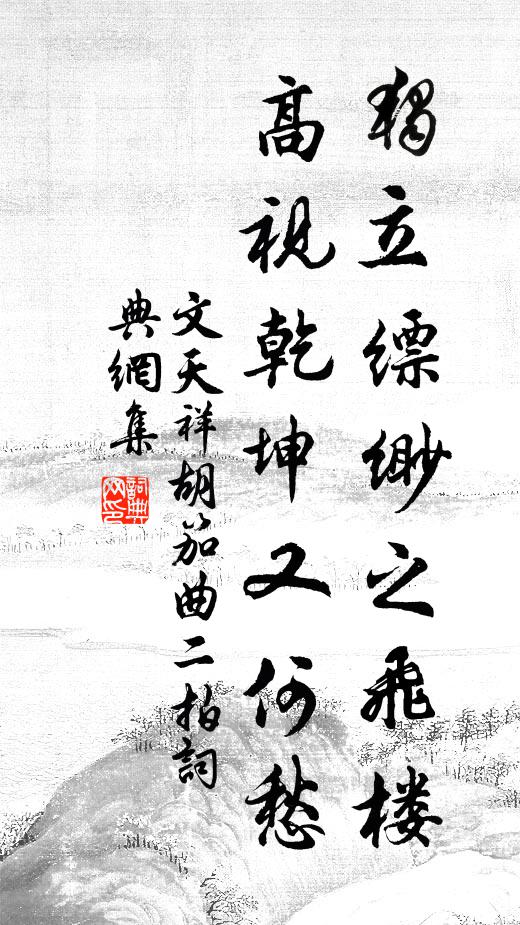 獨立縹緲之飛楼
高視乾坤又何愁
文天祥胡笳曲二拍詞
典網集
詞典网印